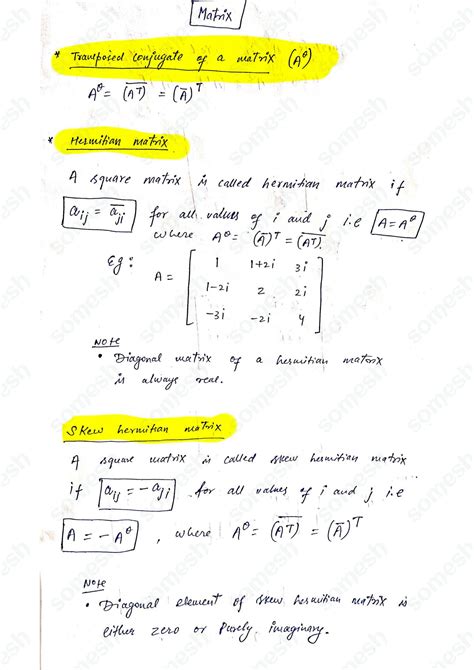 Matrix
* Transposed conjugate of a matrix (A^θ)
A^θ = \overline{(A^T)} = (\overline{A})^T
* Hermitian matrix
A square matrix is called hermitian matrix if
a_{ij} = \overline{a_{ji}} for all values of i and j i.e A = A^θ
where A^θ = (\overline{A})^T = \overline{(A^T)}.
Eg: A = [ 1 1+2i 3i
1-2i 2 2i
-3i -2i 4 ]
Note
• Diagonal matrix of a hermitian matrix
is always real.
Skew hermitian matrix
A square matrix is called skew hermitian matrix
if a_{ij} = -a_{ji} for all values of i and j i.e
A = -A^θ, where A^θ = \overline{(A^T)} = (\overline{A})^T
Note
• Diagonal element of skew hermitian matrix is
either zero or Purely imaginary.
somesh